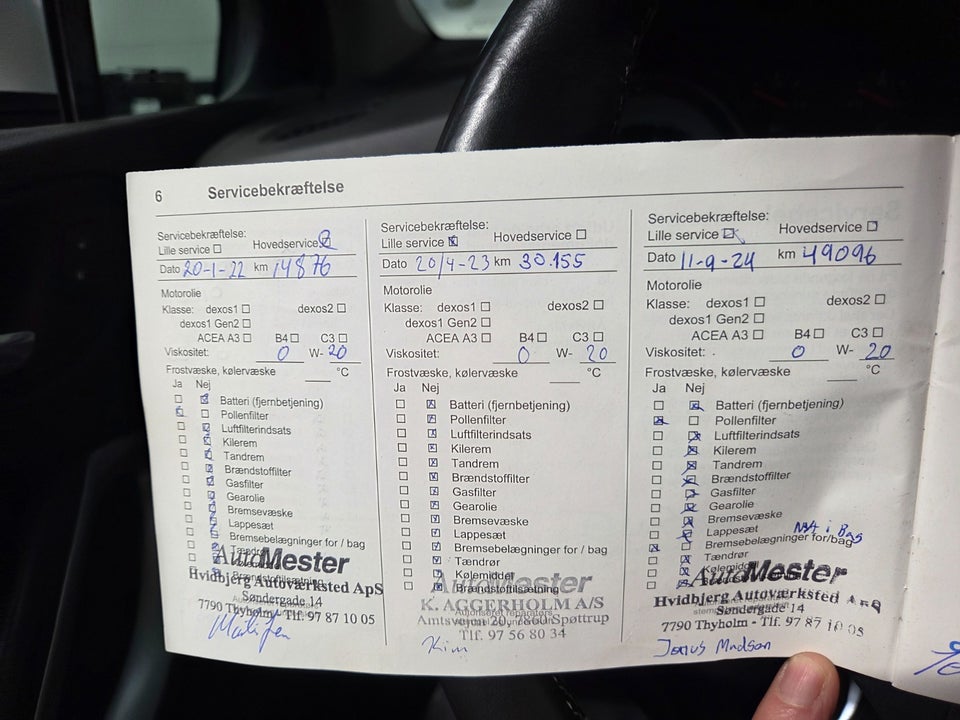 6 Servicebekræftelse
Servicebekræftelse:
Lille service Hovedservice
Dato 20-1-22 km 14876
Motorolie
Klasse: dexos1 dexos2
dexos1 Gen2
ACEA A3 B4 C3
Viskositet: 0 W- 20
Frostvæske, kølervæske °C
Ja Nej
Batteri (fjernbetjening)
Pollenfilter
Luftfilterindsats
Kilerem
Tandrem
Brændstoffilter
Gasfilter
Gearolie
Bremsevæske
Lappesæt
Bremsebelægninger for / bag
Tændrør
AutoMester
Hvidbjerg Autoværksted ApS
Søndergade 14
7790 Thyholm - Tlf. 97 87 10 05
Servicebekræftelse:
Lille service Hovedservice
Dato 20/4-23 km 30.155
Motorolie
Klasse: dexos1 dexos2
dexos1 Gen2
ACEA A3 B4 C3
Viskositet: 0 W- 20
Frostvæske, kølervæske °C
Ja Nej
Batteri (fjernbetjening)
Pollenfilter
Luftfilterindsats
Kilerem
Tandrem
Brændstoffilter
Gasfilter
Gearolie
Bremsevæske
Lappesæt
Bremsebelægninger for / bag
Tændrør
Kølemiddel
Brændstoftilsætning
AutoMester
K. AGGERHOLM A/S
Amtsvejen 20, 7860 Spøttrup
Tlf. 97 56 80 34
Kim
Servicebekræftelse:
Lille service Hovedservice
Dato 11-9-24 km 49096
Motorolie
Klasse: dexos1 dexos2
dexos1 Gen2
ACEA A3 B4 C3
Viskositet: 0 W- 20
Frostvæske, kølervæske °C
Ja Nej
Batteri (fjernbetjening)
Pollenfilter
Luftfilterindsats
Kilerem
Tandrem
Brændstoffilter
Gasfilter
Gearolie
Bremsevæske
Lappesæt
Bremsebelægninger for/bag
Tændrør
Kølemiddel
AutoMester
Hvidbjerg Autoværksted
Søndergade 14
7790 Thyholm - Tlf. 97 87 10 05
Jonus Madsen